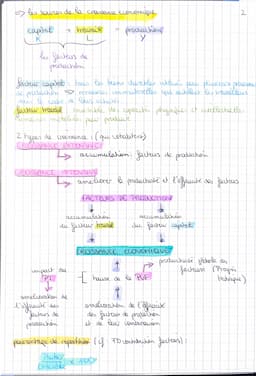 => les sources de la croissance économique
2
capital + travail = production
K L Y
les facteurs de
production
facteur capital : tous les biens durables utilisés pour plusieurs
de production
facteur travail : ensemble de capacités physiques et intellectuelles
pour produire
2 types de croissance :
CROISSANCE EXTENSIVE
accumulation facteurs de production
CROISSANCE INTENSIVE
améliorer la productivité et l'efficacité des facteurs
FACTEURS DE PRODUCTION
accumulation accumulation
du facteur travail du facteur capital
CROISSANCE ÉCONOMIQUE
productivité globale des
impact du facteurs (Progrès
PT hausse de la PGF technique)
amélioration de amélioration de l'efficacité
l'efficacité des des facteurs de production
facteurs de et de leur combinaison
production
pourcentage de répartition (cf TD contribution facteurs) :
x 100